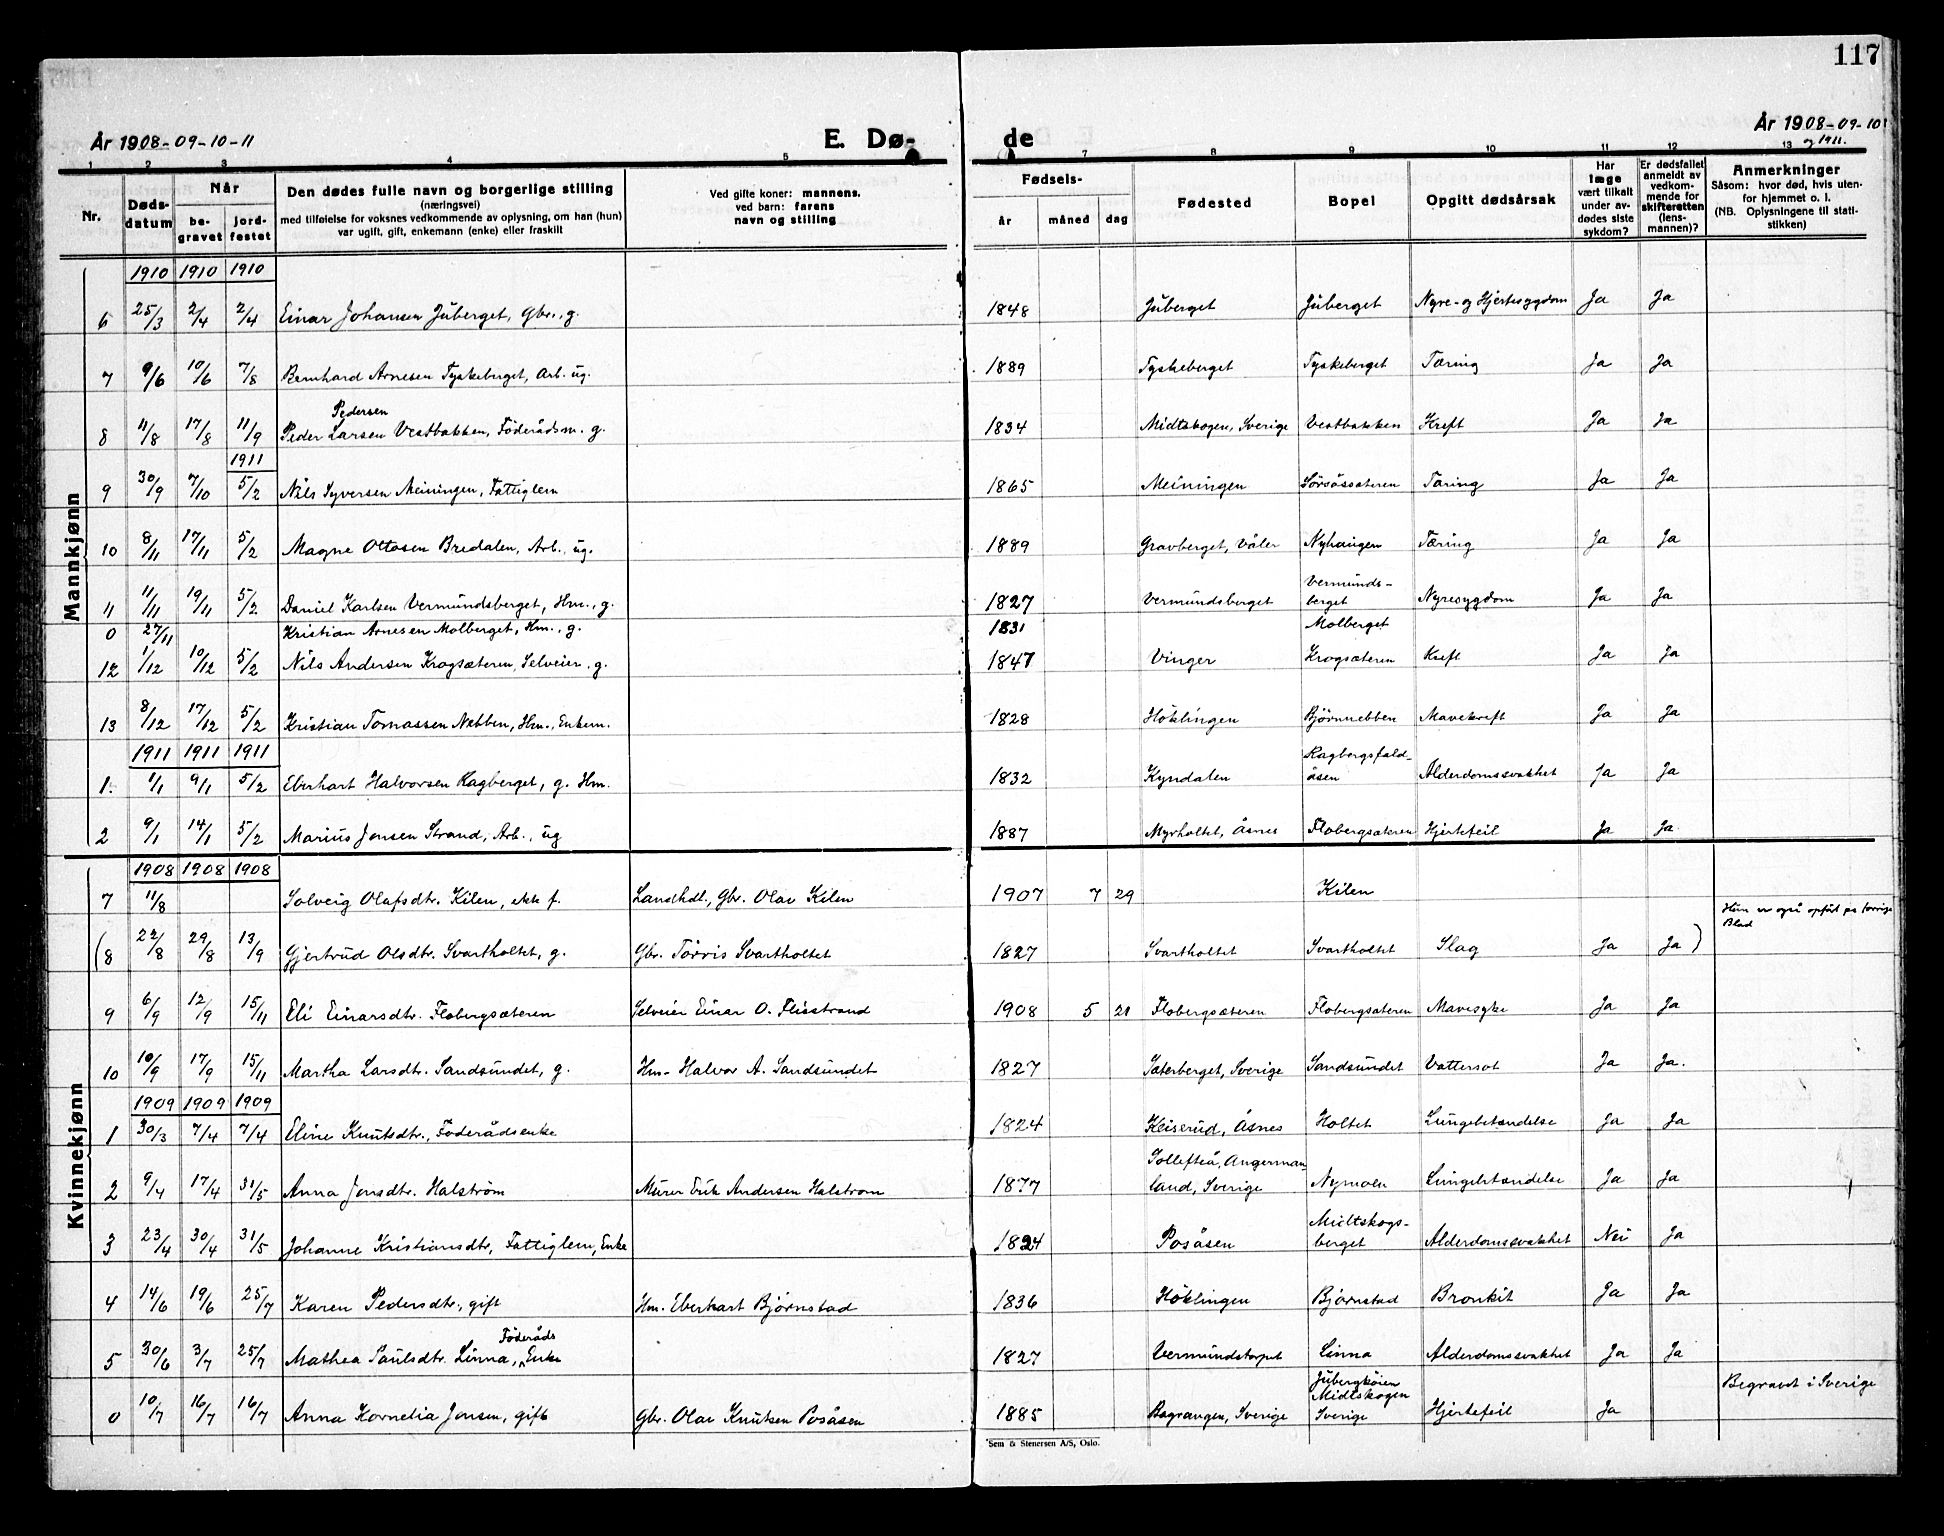 117
År 1908-09-10-11
E. Dø-
de
År 1908-09-10
og 1911.
1 2 3 4 5 7 8 9 10 11 12 13
Nr.
Døds-
datum
Når
be-
gravet
jord-
festet
Den dødes fulle navn og borgerlige stilling
(næringsvei)
med tilføielse for voksnes vedkommende av oplysning, om han (hun)
var ugift, gift, enkemann (enke) eller fraskilt
Ved gifte koner: mannens.
ved barn: farens
navn og stilling
Fødsels-
år måned dag
Fødested
Bopel
Opgitt dødsårsak
Har
læge
vært tilkalt
under av-
dødes siste
sykdom?
Er dødsfallet
anmeldt av
vedkom-
mende for
skifteretten
(lens-
mannen)?
Anmerkninger
Såsom: hvor død, hvis uten-
for hjemmet o. l.
(NB. Oplysningene til stati-
stikken)
Mannkjønn
1910 1910 1910
6 25/3 2/4 2/4 Einar Johansen Juberget, Gbr., g. 1848 Juberget Juberget Nyre- og Hjertesygdom Ja Ja
7 9/6 10/6 7/8 Bernhard Arnesen Tyskeberget, Arb. ug. 1889 Tyskeberget Tyskeberget Tæring Ja Ja
Pedersen
8 11/8 17/8 11/9 Peder Larsen Vestbakken, Föderådsm. g. 1834 Midtskogen, Sverige Vestbakken Kreft Ja Ja
1911
9 30/9 7/10 5/2 Nils Syversen Meiningen, Fattiglem 1865 Meiningen Sörsåssæteren Tæring Ja Ja
10 8/11 17/11 5/2 Magne Ottosen Bredalen, Arb., ug. 1889 Gravberget, Våler Nyhaugen Tæring Ja Ja
11 11/11 19/11 5/2 Daniel Karlsen Vermundsberget, Hm., g. 1827 Vermundsberget Vermunds-
berget Nyresygdom Ja Ja
0 27/11 Kristian Arnesen Molberget, Hm., g. 1831 Molberget
12 1/12 10/12 5/2 Nils Andersen Krogsæteren, Selveier, g. 1847 Vinger Krogsæteren Kreft Ja Ja
13 8/12 17/12 5/2 Kristian Tomassen Nebben, Hm., Enkem. 1828 Höklingen Björnnebben Mavekreft Ja Ja
1911 1911 1911
1. 1/1 9/1 5/2 Eberhart Halvorsen Ragberget, g. Hm. 1832 Kyndalen Ragbergsfald-
åsen Alderdomssvakhet Ja Ja
2 9/1 14/1 5/2 Marius Jensen Strand, Arb., ug 1887 Myrholtet, Åsnes Flobergsæteren Hjertefeil Ja Ja.
Kvinnekjønn
1908 1908 1908
7 11/8 Solveig Olafsdtr. Kilen, ikke f. Landhdl., Gbr. Olav Kilen 1907 7 29 Kilen
(8 22/8 29/8 13/9 Gjertrud Olsdtr. Svartholtet, g. Gbr. Törris Svartholtet 1827 Svartholtet Svartholtet Slag Ja Ja) Hun er også opført på forrige
Blad
9 6/9 12/9 15/11 Eli Einarsdtr. Flobergsæteren Selveier Einar O. Flisstrand 1908 5 21 Flobergsæteren Flobergsæteren Mavesyke Ja Ja
10 10/9 17/9 15/11 Martha Larsdtr. Sandsundet, g. Hm. Halvor A. Sandsundet 1827 Sæterberget, Sverige Sandsundet Vattersot Ja Ja.
1909 1909 1909
1 30/3 7/4 7/4 Eline Knutsdtr., Föderådsenke 1824 Keiserud, Åsnes Holtet Lungebetændelse Ja Ja
2 9/4 17/4 31/5 Anna Jonsdtr. Halström Murer Erik Andersen Halstrom 1877 Sollefteå, Angerman-
land, Sverige Nymoen Lungebetændelse Ja Ja
3 23/4 30/4 31/5 Johanne Kristiansdtr., Fattiglem, Enke 1824 Posåsen Midtskogs-
berget Alderdomssvakhet Nei Ja
4 14/6 19/6 25/7 Karen Pedersdtr., gift Hm. Eberhart Björnstad 1836 Höklingen Björnstad Bronkit Ja Ja
Föderåds
5 30/6 3/7 25/7 Mathea Paulsdtr. Linna, Enke 1827 Vermundstorpet Linna Alderdomssvakhet Ja Ja
0 10/7 16/7 16/7 Anna Kornelia Jensen, gift Gbr. Olav Knutsen Posåsen 1885 Bograngen, Sverige Jubergköien
Midtskogen
Sverige Hjertefeil Ja Begravt i Sverige
Sem & Stenersen A/S, Oslo.